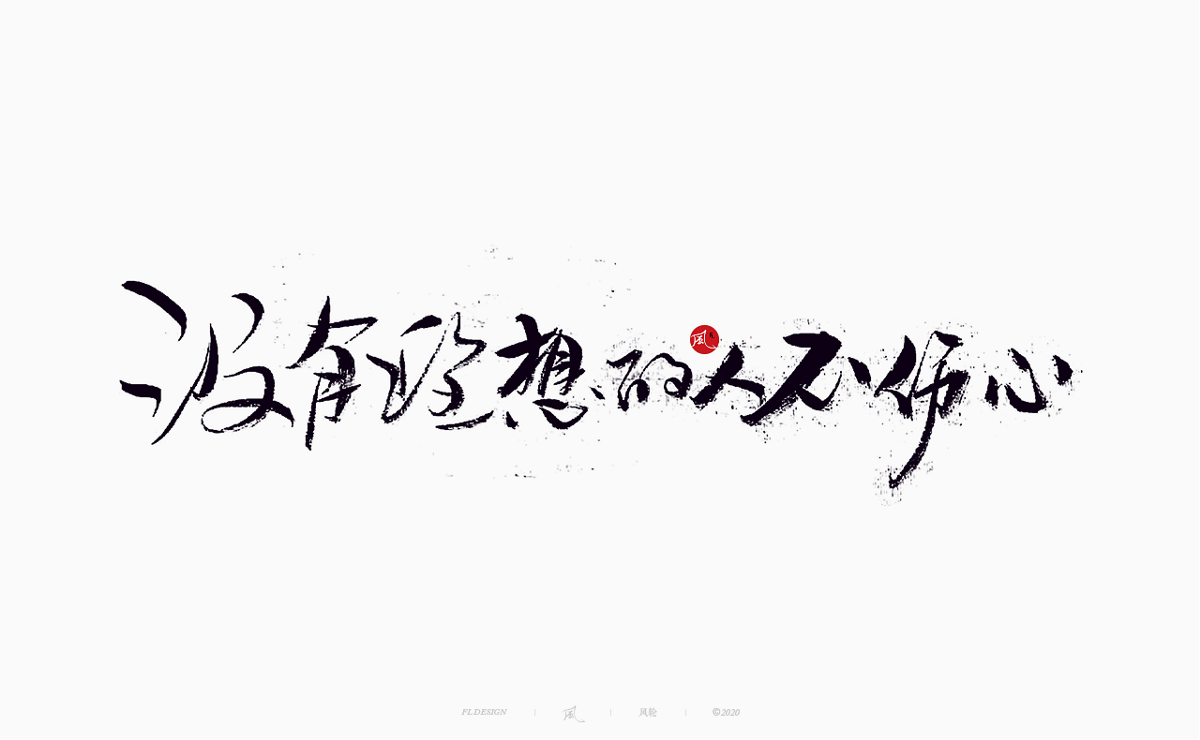 没有理想的人不伤心
風
FL.DESIGN | 風 | 风轮 | ©2020